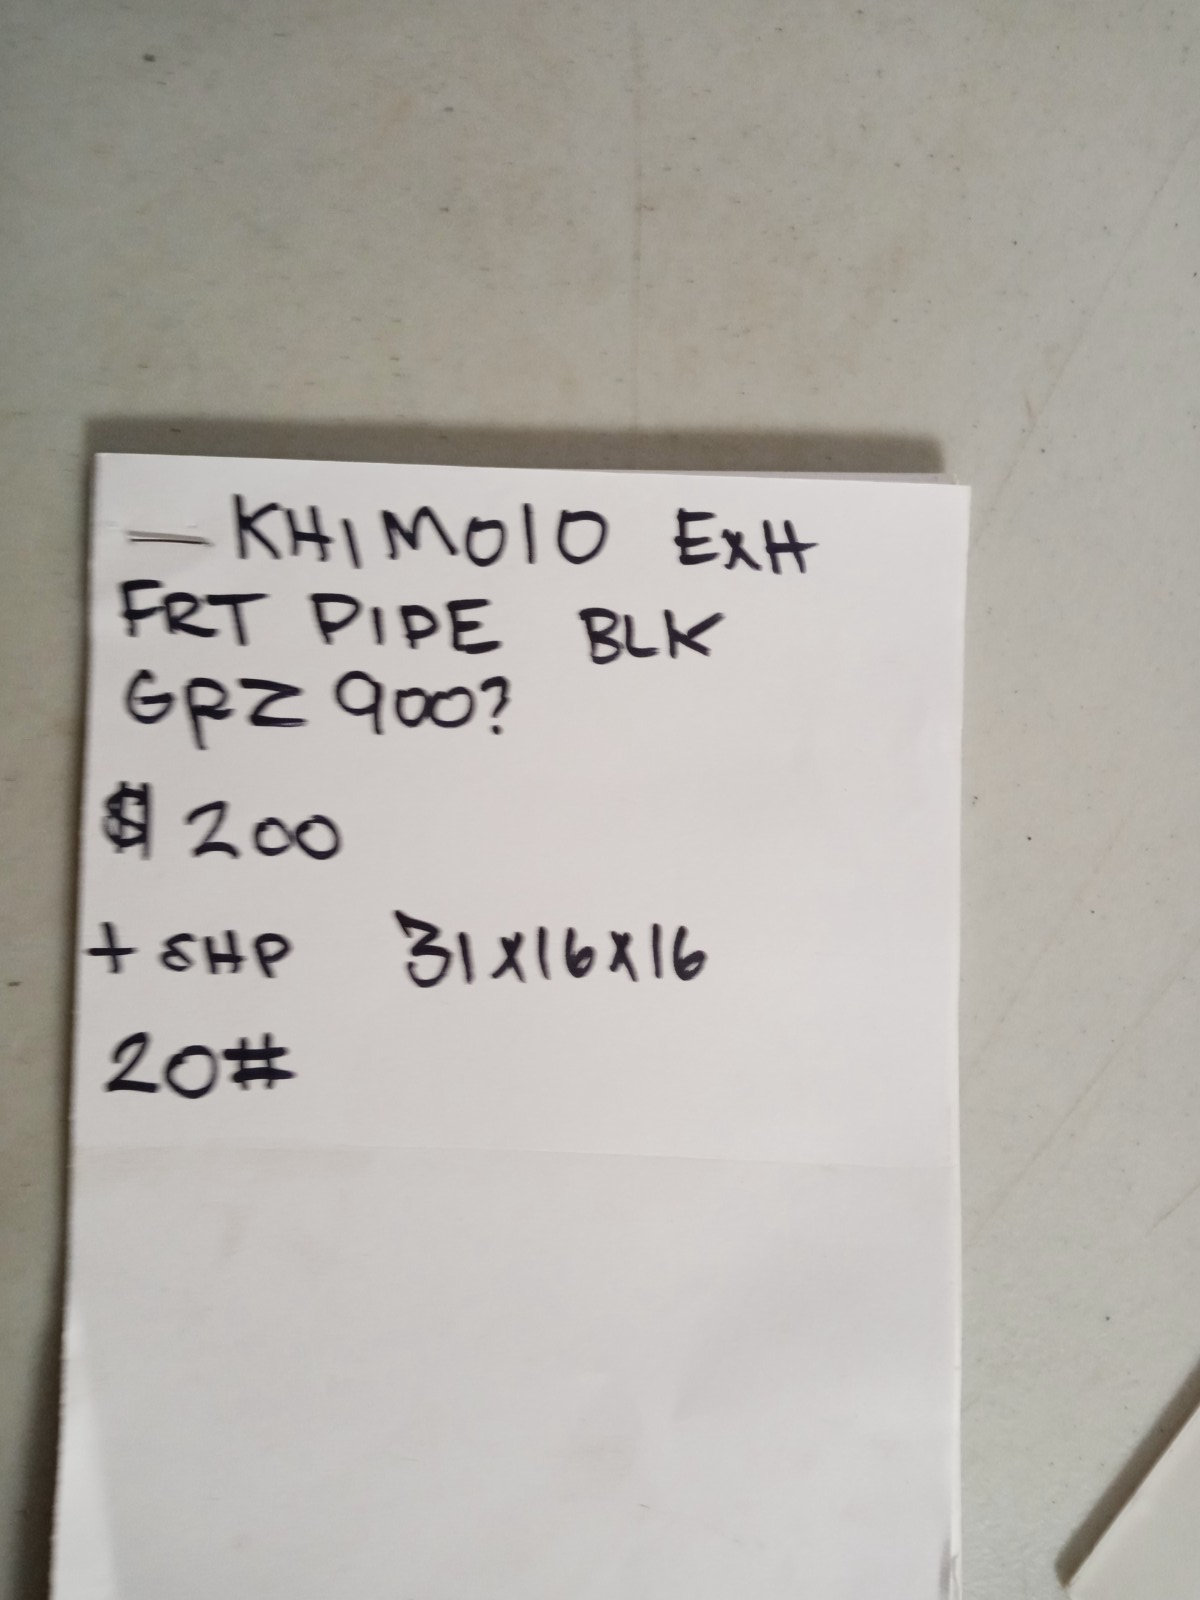 KHI M010 EXH
FRT PIPE BLK
GPZ 900?
$ 200
+ SHP 31x16x16
20#